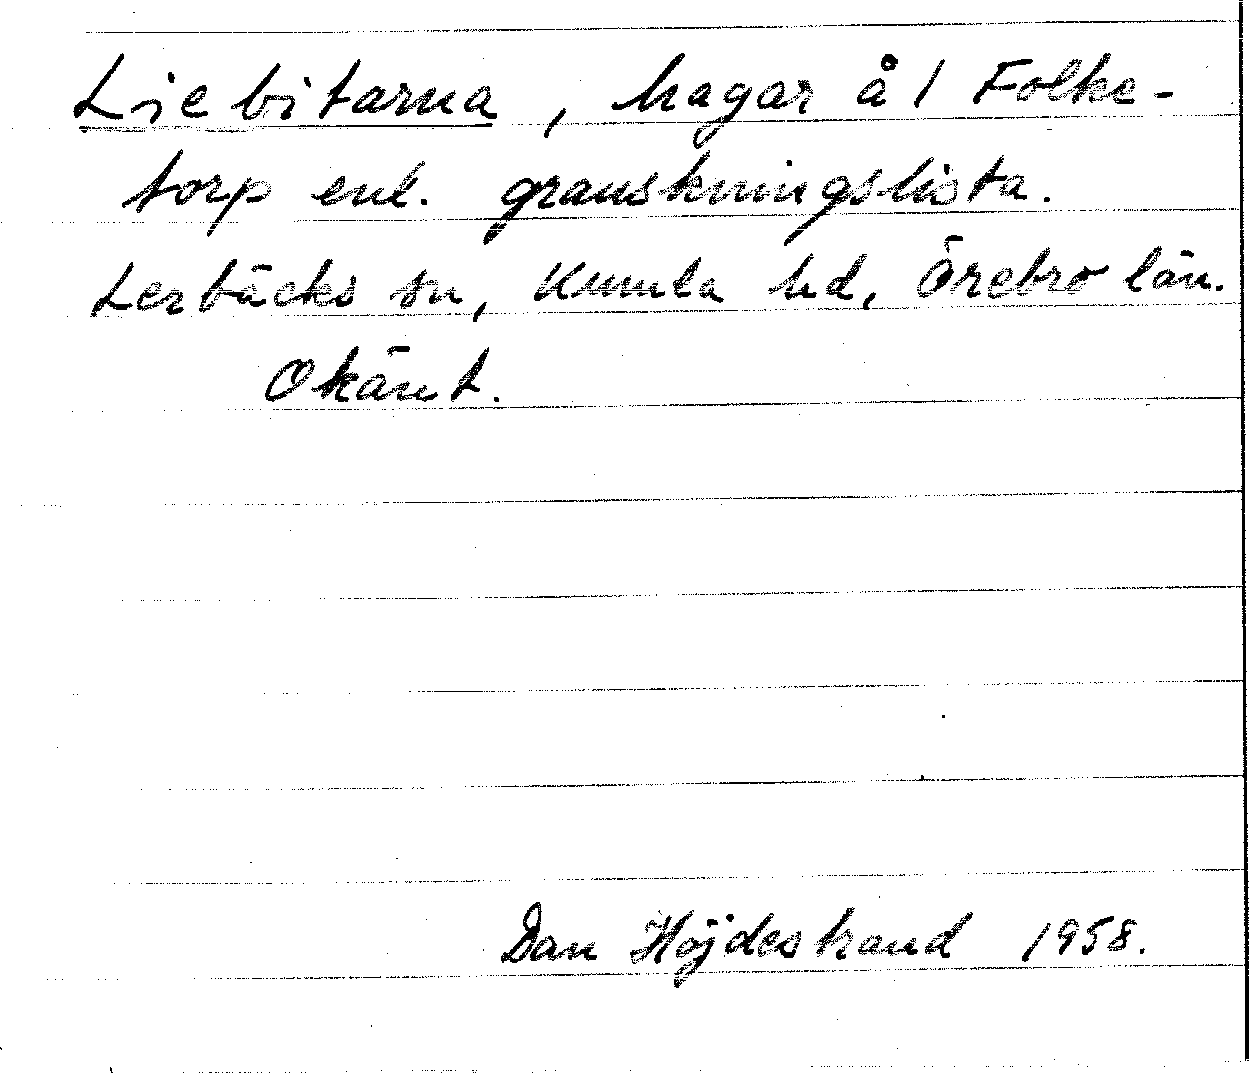 Liebitarna, hagar å 1 Folke-
torp enl. granskningslista.
Lerbäcks sn, Kumla hd, Örebro län.
Okänt.
Dan Höjdestrand 1958.